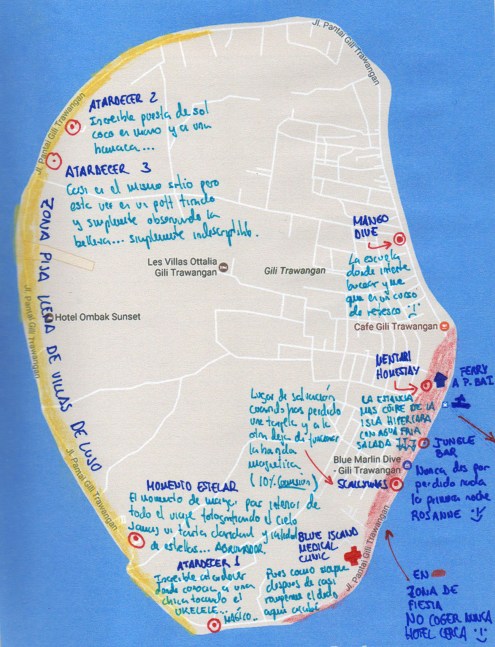 Jl. Pantai Gili Trawangan
Jl. Pantai Gili Trawangan
ATARDECER 2
Increíble puesta de sol
coco en mano y a una
hamaca...
ATARDECER 3
Casi en el mismo sitio pero
esta vez en un poff tirado
y simplemente observando la
belleza... simplemente indescriptible.
ZONA PIJA LLENA DE VILLAS DE LUJO
MANGO
DIVE
La escuela
donde intente
bucear y me
que en un curso
de refresco
Les Villas Ottalia
Gili Trawangan
Gili Trawangan
Jl. Pantai Gili Trawangan
Hotel Ombak Sunset
Cafe Gili Trawangan
LENTARI
HOMESTAY
FERRY
A P. BAI
LA ESTANCIA
MAS COÑERE DE LA
ISLA HIPERCARA
CON AGUA FRIA
SALADA
JUNGLE
BAR
Nunca des por
perdido nada
la primera noche
ROSANNE
Lugar de salvación
cuando has perdido
una tarjeta y a la
otra deja de funcionar
la banda
magnetica
(10% comision)
Blue Marlin Dive
- Gili Trawangan
SCALLYWAGS
Jl. Pantai Gili Trawangan
MOMENTO ESTELAR
El momento de mayor paz interior de
todo el viaje fotografiando el cielo
Jamas vi tanta claridad y calidad
de estrellas...
ATARDECER 1
Increíble atardecer
donde conocí a una
chica tocando el
UKELELE...
MAGICO...
BLUE ISLAND
MEDICAL
CLINIC
Pues como siempre
despues de casi
romperme el dedo
aqui acabé
Jl. Pantai Gili Trawangan
EN
ZONA DE
FIESTA
NO COGER NUNCA
HOTEL CERCA